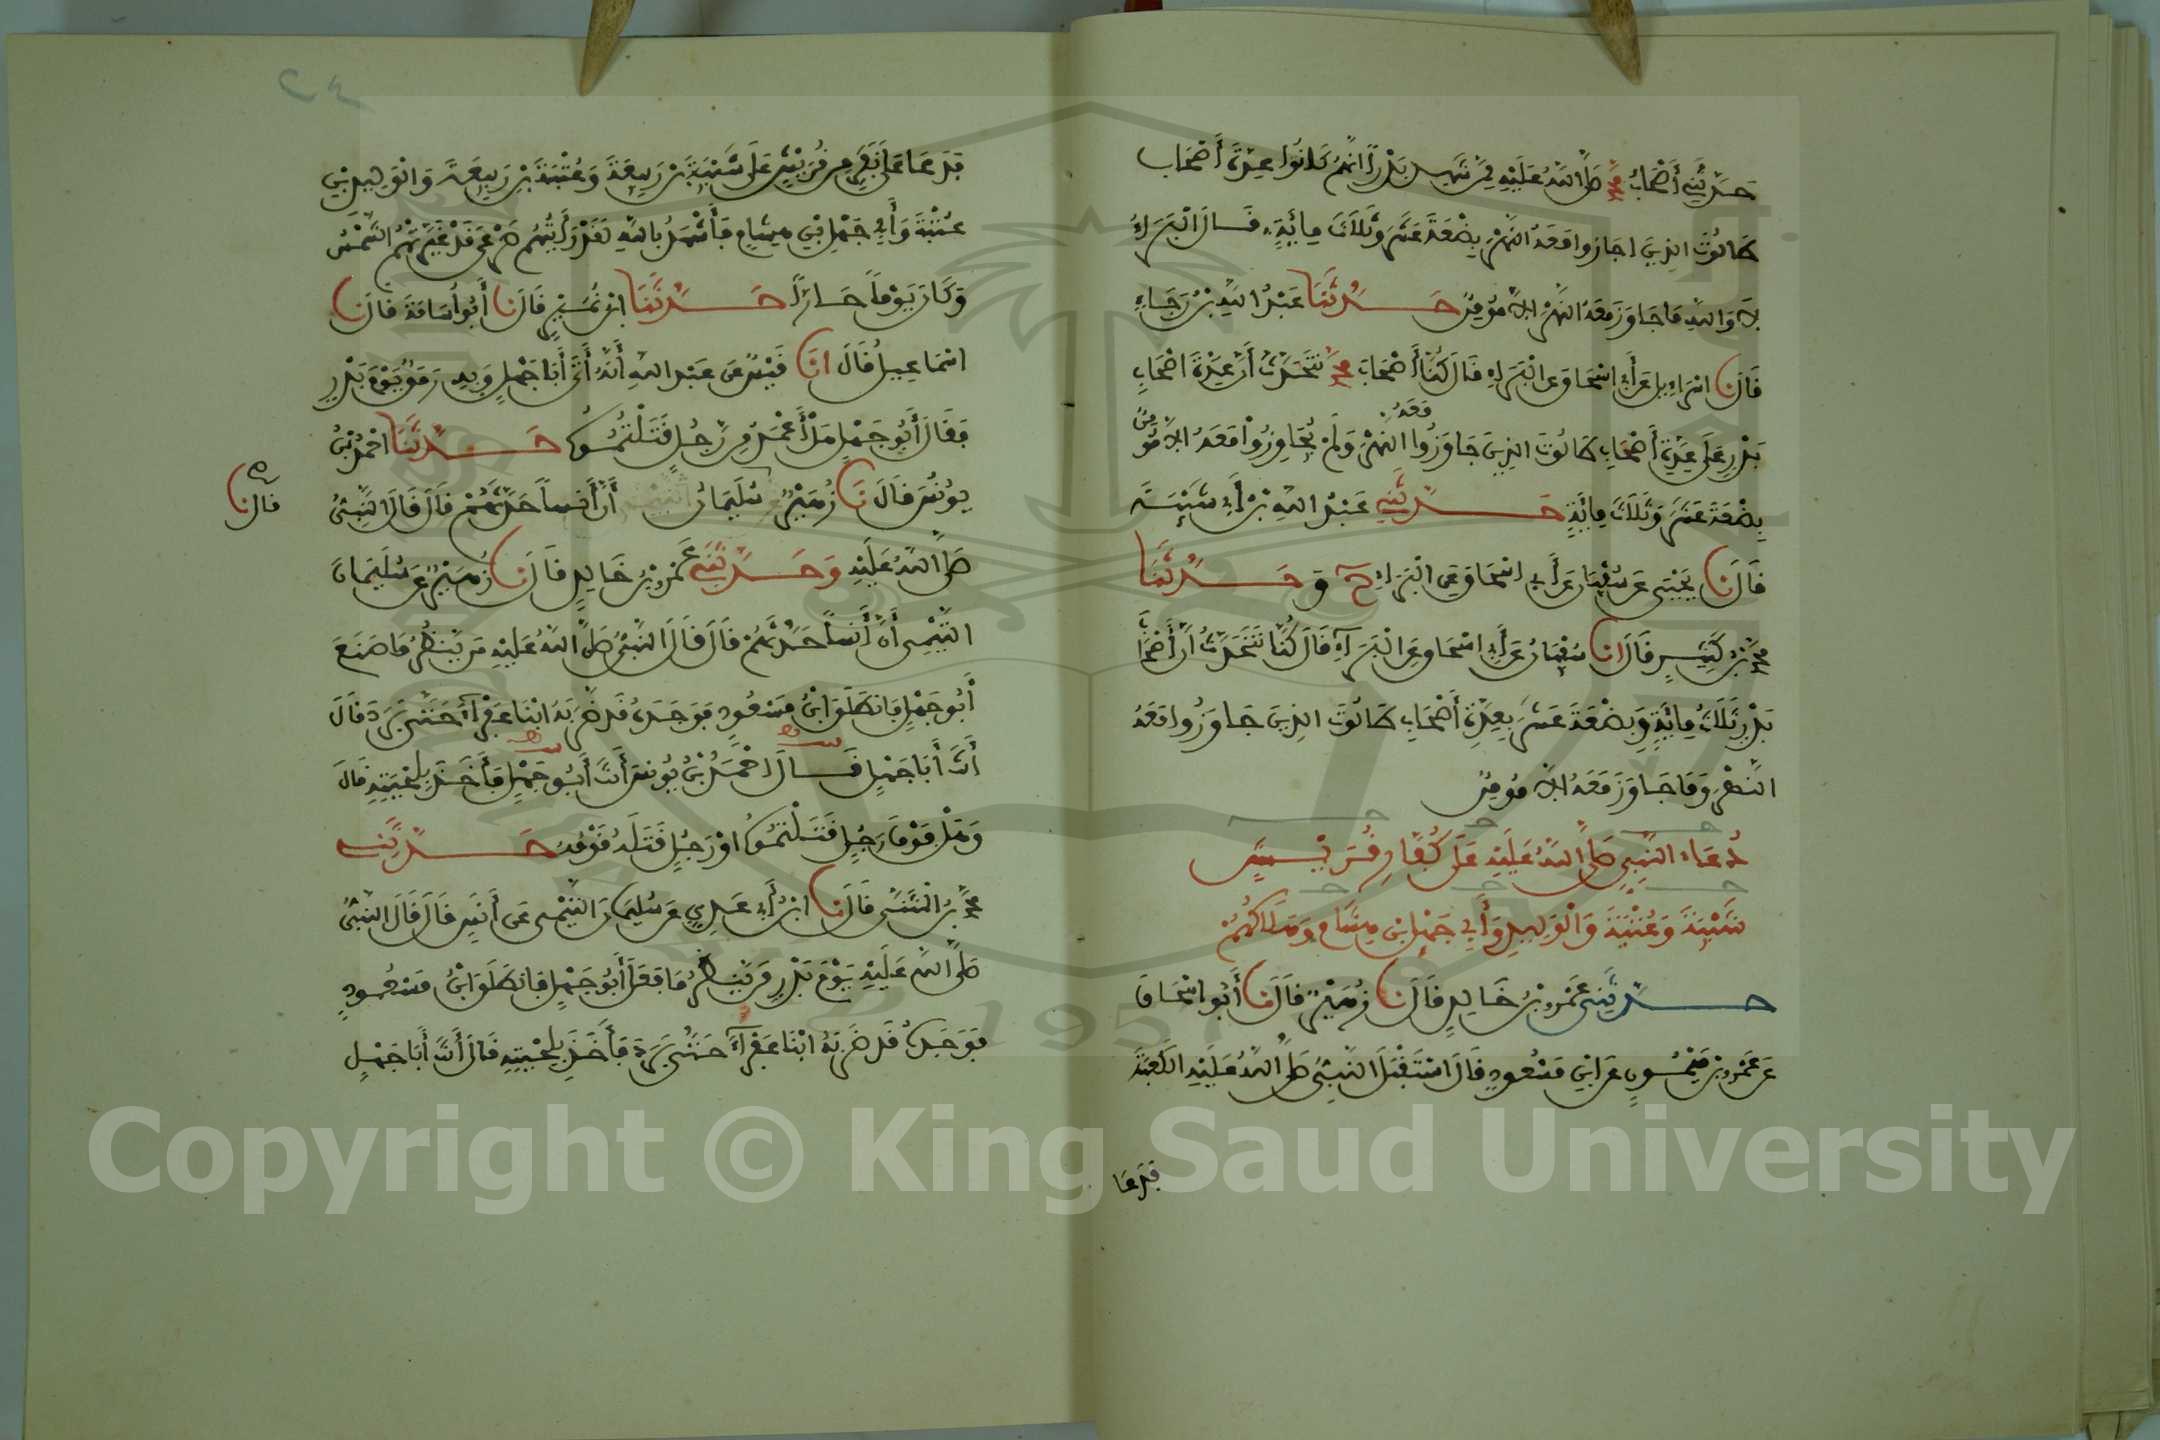 حَدَّثَنِي أَصْحَابُ مُحَمَّدٍ صَلَّى اللهُ عَلَيْهِ مِمَّنْ شَهِدَ بَدْرًا أَنَّهُمْ كَانُوا عِدَّةَ أَصْحَابِ
طَالُوتَ الذِينَ اجَازُوا مَعَهُ النَّهْرَ بِضْعَةَ عَشَرَ وَثَلَاثَ مِائَةٍ قَالَ الْبَرَاءُ
لَا وَاللهِ مَا جَاوَزَ مَعَهُ النَّهْرَ إِلَّا مُؤْمِنٌ حَدَّثَنَا عَبْدُ اللهِ بْنُ رَجَاءٍ
قَالَ نَا اسْرَاءِيلُ عَنْ أَبِي اسْحَاقَ عَنِ الْبَرَاءِ قَالَ كُنَّا أَصْحَابَ مُحَمَّدٍ نَتَحَدَّثُ أَنَّ عِدَّةَ اصْحَابِ
بَدْرٍ عَلَى عِدَّةِ أَصْحَابِ طَالُوتَ الذِينَ جَاوَزُوا مَعَهُ النَّهْرَ وَلَمْ يُجَاوِزُوا مَعَهُ إِلَّا مُؤْمِنٌ
بِضْعَةَ عَشَرَ وَثَلَاثَ مِائَةٍ حَدَّثَنِي عَبْدُ اللهِ بْنُ أَبِي شَيْبَةَ
قَالَ نَا يَحْيَى عَنْ سُفْيَانَ عَنْ أَبِي اسْحَاقَ عَنِ الْبَرَاءِ ح وَحَدَّثَنَا
مُحَمَّدُ بْنُ كَثِيرٍ قَالَ انَا سُفْيَانُ عَنْ أَبِي اسْحَاقَ عَنِ الْبَرَاءِ قَالَ كُنَّا نَتَحَدَّثُ أَنَّ أَصْحَابَ
بَدْرٍ ثَلَاثُ مِائَةٍ وَبِضْعَةَ عَشَرَ بِعِدَّةِ أَصْحَابِ طَالُوتَ الذِينَ جَاوَزُوا مَعَهُ
النَّهْرَ وَمَا جَاوَزَ مَعَهُ إِلَّا مُومِنٌ
دُعَاءُ النَّبِيِّ صَلَّى اللهُ عَلَيْهِ عَلَى كُفَّارِ قُرَيْشٍ
شَيْبَةَ وَعُتْبَةَ وَالْوَلِيدِ وَأَبِي جَهْلِ ابْنِ هِشَامٍ وَهَلَاكُهُمْ
حَدَّثَنِي عَمْرُو بْنُ خَالِدٍ قَالَ نَا زُهَيْرٌ قَالَ نَا أَبُو اسْحَاقَ
عَنْ عَمْرِو بْنِ مَيْمُونٍ عَنِ ابْنِ مَسْعُودٍ قَالَ اسْتَقْبَلَ النَّبِيُّ صَلَّى اللهُ عَلَيْهِ الْكَعْبَةَ
فَدَعَا
فَدَعَا عَلَى نَفَرٍ مِنْ قُرَيْشٍ عَلَى شَيْبَةَ بْنِ رَبِيعَةَ وَعُتْبَةَ بْنِ رَبِيعَةَ وَالْوَلِيدِ بْنِ
عُتْبَةَ وَأَبِي جَهْلِ بْنِ هِشَامٍ فَأَشْهَدُ بِاللهِ لَقَدْ رَأَيْتُهُمْ صَرْعَى قَدْ غَيَّرَتْهُمُ الشَّمْسُ
وَكَانَ يَوْمًا حَارًّا حَدَّثَنَا ابْنُ نُمَيْرٍ قَالَ نَا أَبُو أُسَامَةَ قَالَ نَا
اسْمَاعِيلُ قَالَ انَا قَيْسٌ عَنْ عَبْدِ اللهِ أَنَّهُ أَتَى أَبَا جَهْلٍ وَبِهِ رَمَقٌ يَوْمَ بَدْرٍ
فَقَالَ أَبُو جَهْلٍ هَلْ أَعْمَدُ مِنْ رَجُلٍ قَتَلْتُمُوهُ حَدَّثَنَا احْمَدُ بْنُ
يُونُسَ قَالَ نَا زُهَيْرٌ سُلَيْمَانُ التَّيْمِيُّ أَنَّ أَنَسًا حَدَّثَهُمْ قَالَ قَالَ النَّبِيُّ
قال نا
صَلَّى اللهُ عَلَيْهِ وَحَدَّثَنِي عَمْرُو بْنُ خَالِدٍ قَالَ نَا زُهَيْرٌ عَنْ سُلَيْمَانَ
التَّيْمِيِّ أَنَّ أَنَسًا حَدَّثَهُمْ قَالَ قَالَ النَّبِيُّ صَلَّى اللهُ عَلَيْهِ مَنْ يَنْظُرُ مَا صَنَعَ
أَبُو جَهْلٍ فَانْطَلَقَ ابْنُ مَسْعُودٍ فَوَجَدَهُ قَدْ ضَرَبَهُ ابْنَا عَفْرَاءَ حَتَّى بَرَدَ قَالَ
أَنْتَ أَبَا جَهْلٍ قَالَ احْمَدُ بْنُ يُونُسَ أَنْتَ أَبُو جَهْلٍ فَأَخَذَ بِلِحْيَتِهِ قَالَ
وَهَلْ فَوْقَ رَجُلٍ قَتَلْتُمُوهُ اوْ رَجُلٍ قَتَلَهُ قَوْمُهُ حَدَّثَنِي
مُحَمَّدُ بْنُ الْمُثَنَّى قَالَ نَا ابْنُ أَبِي عَدِيٍّ عَنْ سُلَيْمَانَ التَّيْمِيِّ عَنْ أَنَسٍ قَالَ قَالَ النَّبِيُّ
صَلَّى اللهُ عَلَيْهِ يَوْمَ بَدْرٍ مَنْ يَنْظُرُ مَا فَعَلَ أَبُو جَهْلٍ فَانْطَلَقَ ابْنُ مَسْعُودٍ
فَوَجَدَهُ قَدْ ضَرَبَهُ ابْنَا عَفْرَاءَ حَتَّى بَرَدَ فَأَخَذَ بِلِحْيَتِهِ قَالَ أَنْتَ أَبَا جَهْلٍ
1957
Copyright © King Saud University